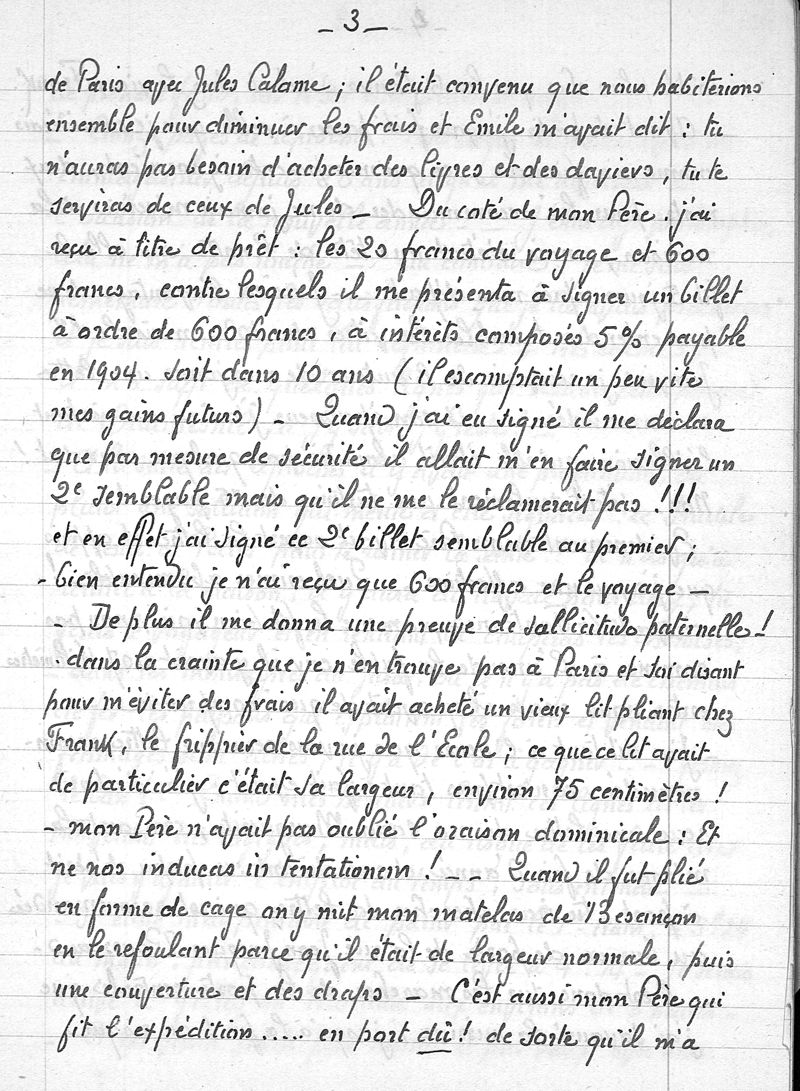 _ 3 _
de Paris avec Jules Calame ; il était convenu que nous habiterions
ensemble pour diminuer les frais et Emile m'avait dit : tu
n'auras pas besoin d'acheter des livres et des daviers, tu te
serviras de ceux de Jules _ Du coté de mon Père . j'ai
reçu à titre de prêt : les 20 francs du voyage et 600
francs, contre lesquels il me présenta à signer un billet
à ordre de 600 francs, à intérêts composés 5% payable
en 1904. soit dans 10 ans (il escomptait un peu vite
mes gains futurs) _ Quand j'ai eu signé il me déclara
que par mesure de sécurité il allait m'en faire signer un
2e semblable mais qu'il ne me le réclamerait pas !!!
et en effet j'ai signé ce 2e billet semblable au premier ;
- bien entendu je n'ai reçu que 600 francs et le voyage _
_ De plus il me donna une preuve de sollicitude paternelle !
. dans la crainte que je n'en trouve pas à Paris et soi disant
pour m'éviter des frais il avait acheté un vieux lit pliant chez
Frank, le frippier de la rue de l'Ecole ; ce que ce lit avait
de particulier c'était sa largeur, environ 75 centimètres !
_ mon Père n'avait pas oublié l'oraison dominicale : Et
ne nos inducas in tentationem ! _ _ Quand il fut plié
en forme de cage on y mit mon matelas de Besançon
en le refoulant parce qu'il était de largeur normale, puis
une couverture et des draps _ C'est aussi mon Père qui
fit l'expédition ..... en port dû ! de sorte qu'il m'a